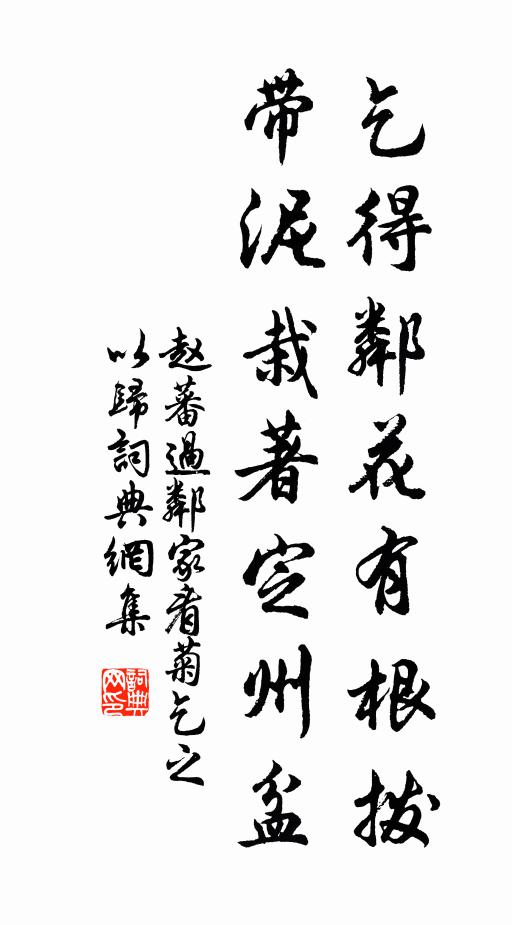 乞得鄰花有根拨
带泥栽著定州盆
赵蕃過鄰家看菊乞之
以歸詞典網集
詞典
网印